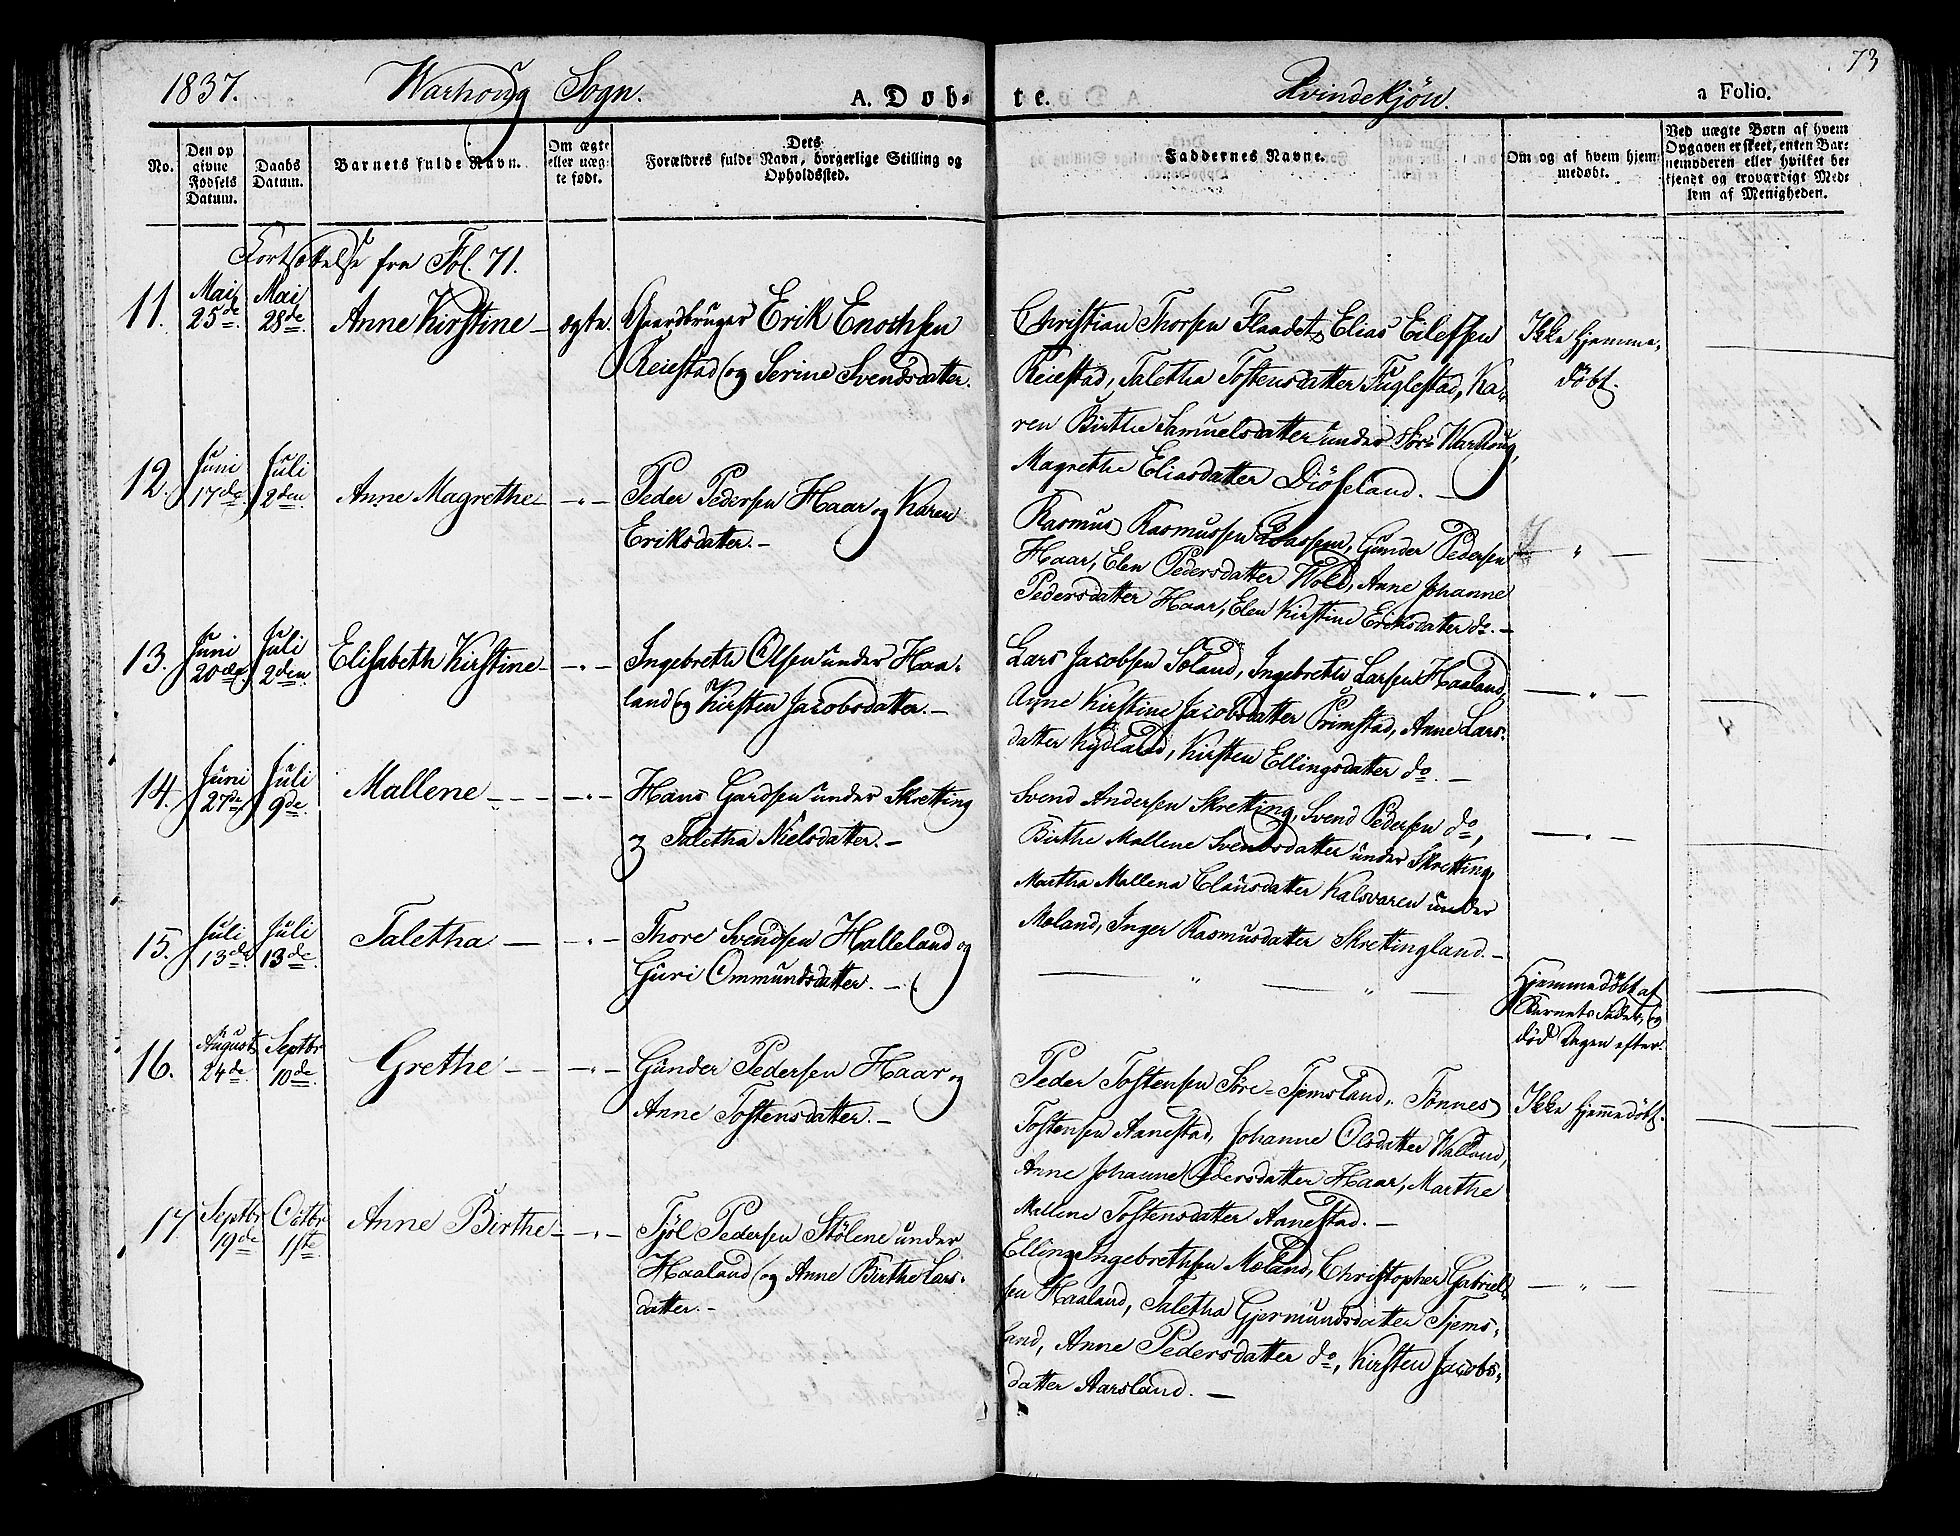 73
1837. Warhoug Sogn. A. Døb- te. Qvindekjön. a Folio.
No.
Den op givne Fødsels Datum.
Daabs Datum.
Barnets fulde Navn.
Om ægte eller uæg- te født.
Dets Forældres fulde Navn, borgerlige Stilling og Opholdssted.
Faddernes Navne.
Om og af hvem hjem- medøbt.
Ved uægte Børn af hvem Opgaven er skeet, enten Bar- nemoderen eller hvilket be- kjendt og troværdigt Med- lem af Menigheden.
Fortsættelse fra Fol. 71.
11. Mai 25de. Mai 28de. Anne Kirstine - ægte. Gaardbruger Erik Enochsen
Reiestad og Serine Svendsdatter.
Christian Thorsen Flaadet, Elias Eilefsen
Reiestad, Taletha Tostensdatter Fuglestad, Ka-
ren Birthe Samuelsdatter under Sör-Warhoug,
Magrethe Eliasdatter Diöseland. -
Ikke hjemme-
döbt.
12. Juni 17de Juli 2den Anne Magrethe - " - Peder Pedersen Haar og Karen
Eriksdatter. -
Rasmus Rasmussen Aassen, Gunder Pedersen
Haar, Elen Pedersdatter Wold, Anne Johanne
Pedersdatter Haar, Elen Kirstine Eriksdatter do. -
- " -
13. Juni 20de. Juli 2den. Elisabeth Kirstine - " - Ingebreth Olsen under Haa-
land og Kirsten Jacobsdatter. -
Lars Jacobsen Söland, Ingebreth Larsen Haaland,
Anne Kirstine Jacobsdatter Primstad, Anne Lars-
datter Kydland, Kirsten Ellingsdatter do. -
- " -
14. Juni 27de Juli 9de. Mallene - " - Hans Gardsen under Skretting
og Taletha Nielsdatter. -
Svend Andersen Skretting, Svend Pedersen do,
Birthe Mallene Svendsdatter under Skretting,
Martha Mallena Clausdatter Kalsvaren under
Moland, Inger Rasmusdatter Skrettingland. -
- " -
15. Juli 13de. Juli 13de. Taletha - " - Thore Svendsen Halleland og
Guri Ommundsdatter. -
- " " -
Hjemmedöbt af
Barnets Fader, og
död Dagen efter.
16. August 24de. Septbr 10de. Grethe - " - Gunder Pedersen Haar og
Anne Tostensdatter. -
Peder Tostensen Söre-Tjemsland, Tönnes
Tostensen Aanestad, Johanne Olsdatter Walland,
Anne Johanne Pedersdatter Haar, Marthe
Mallene Tostensdatter Aanestad. -
Ikke hjemmedöbt.
17. Septbr 19de Octbr 1ste Anne Birthe - " - Tjöl Pedersen Stölene under
Haaland og Anne Birthe Lars-
datter. -
Elling Ingebrethsen Moland, Christopher Gabriel-
sen Haaland, Taletha Gjermundsdatter Tjems-
land, Anne Pedersdatter do, Kirsten Jacobs-
datter Aarsland. -
- " -